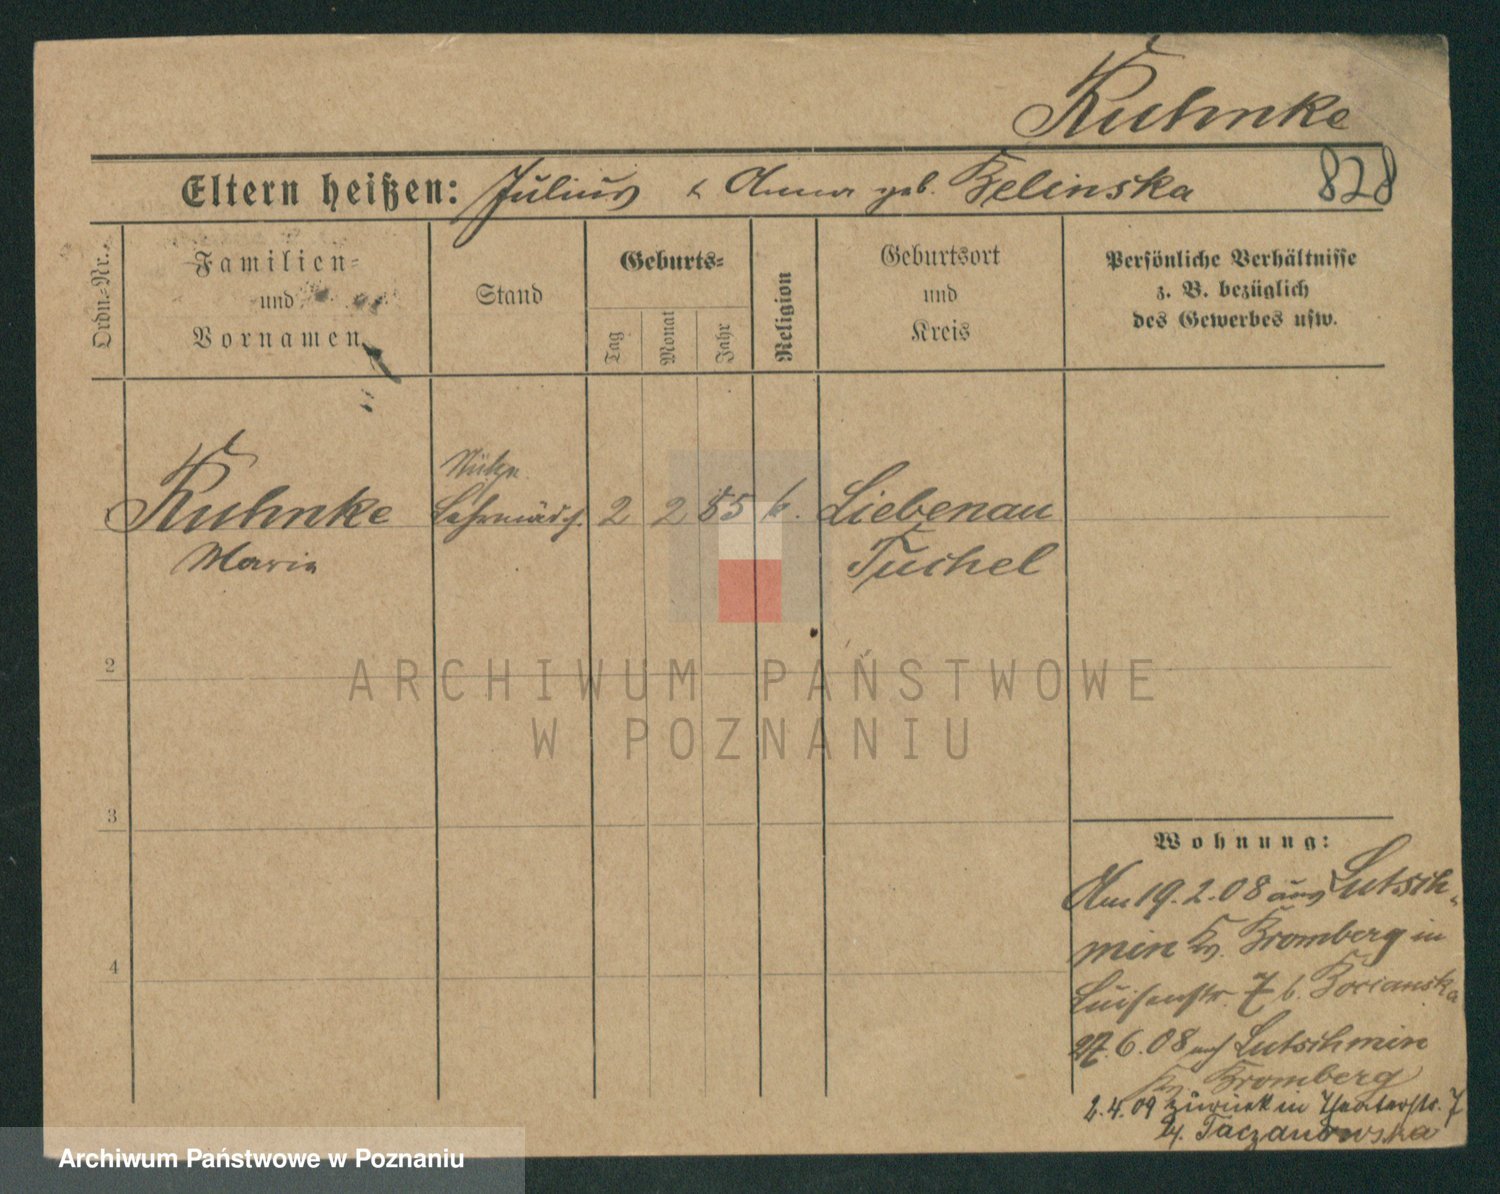 Kuhnke
Eltern heißen: Julius & Anna geb. Belinska
828
Ordn.-Nr.
Familien-
und
Vornamen
Stand
Geburts-
Tag
Monat
Jahr
Religion
Geburtsort
und
Kreis
Persönliche Verhältnisse
z. B. bezüglich
des Gewerbes usw.
Kuhnke
Maria
Lehrmädch.
2
2
k.
Liebenau
Tuchel
2
3
4
Wohnung:
Am 19.2.08 aus Lutsch-
min Kr. Bromberg in
Luisenstr. 7 b. Bocianska
27.6.08 nach Lutschmin
Kr. Bromberg
2.4.09 zurück in Theaterstr. 7
b. Taczanowska
ARCHIWUM PAŃSTWOWE
W POZNANIU
Archiwum Państwowe w Poznaniu